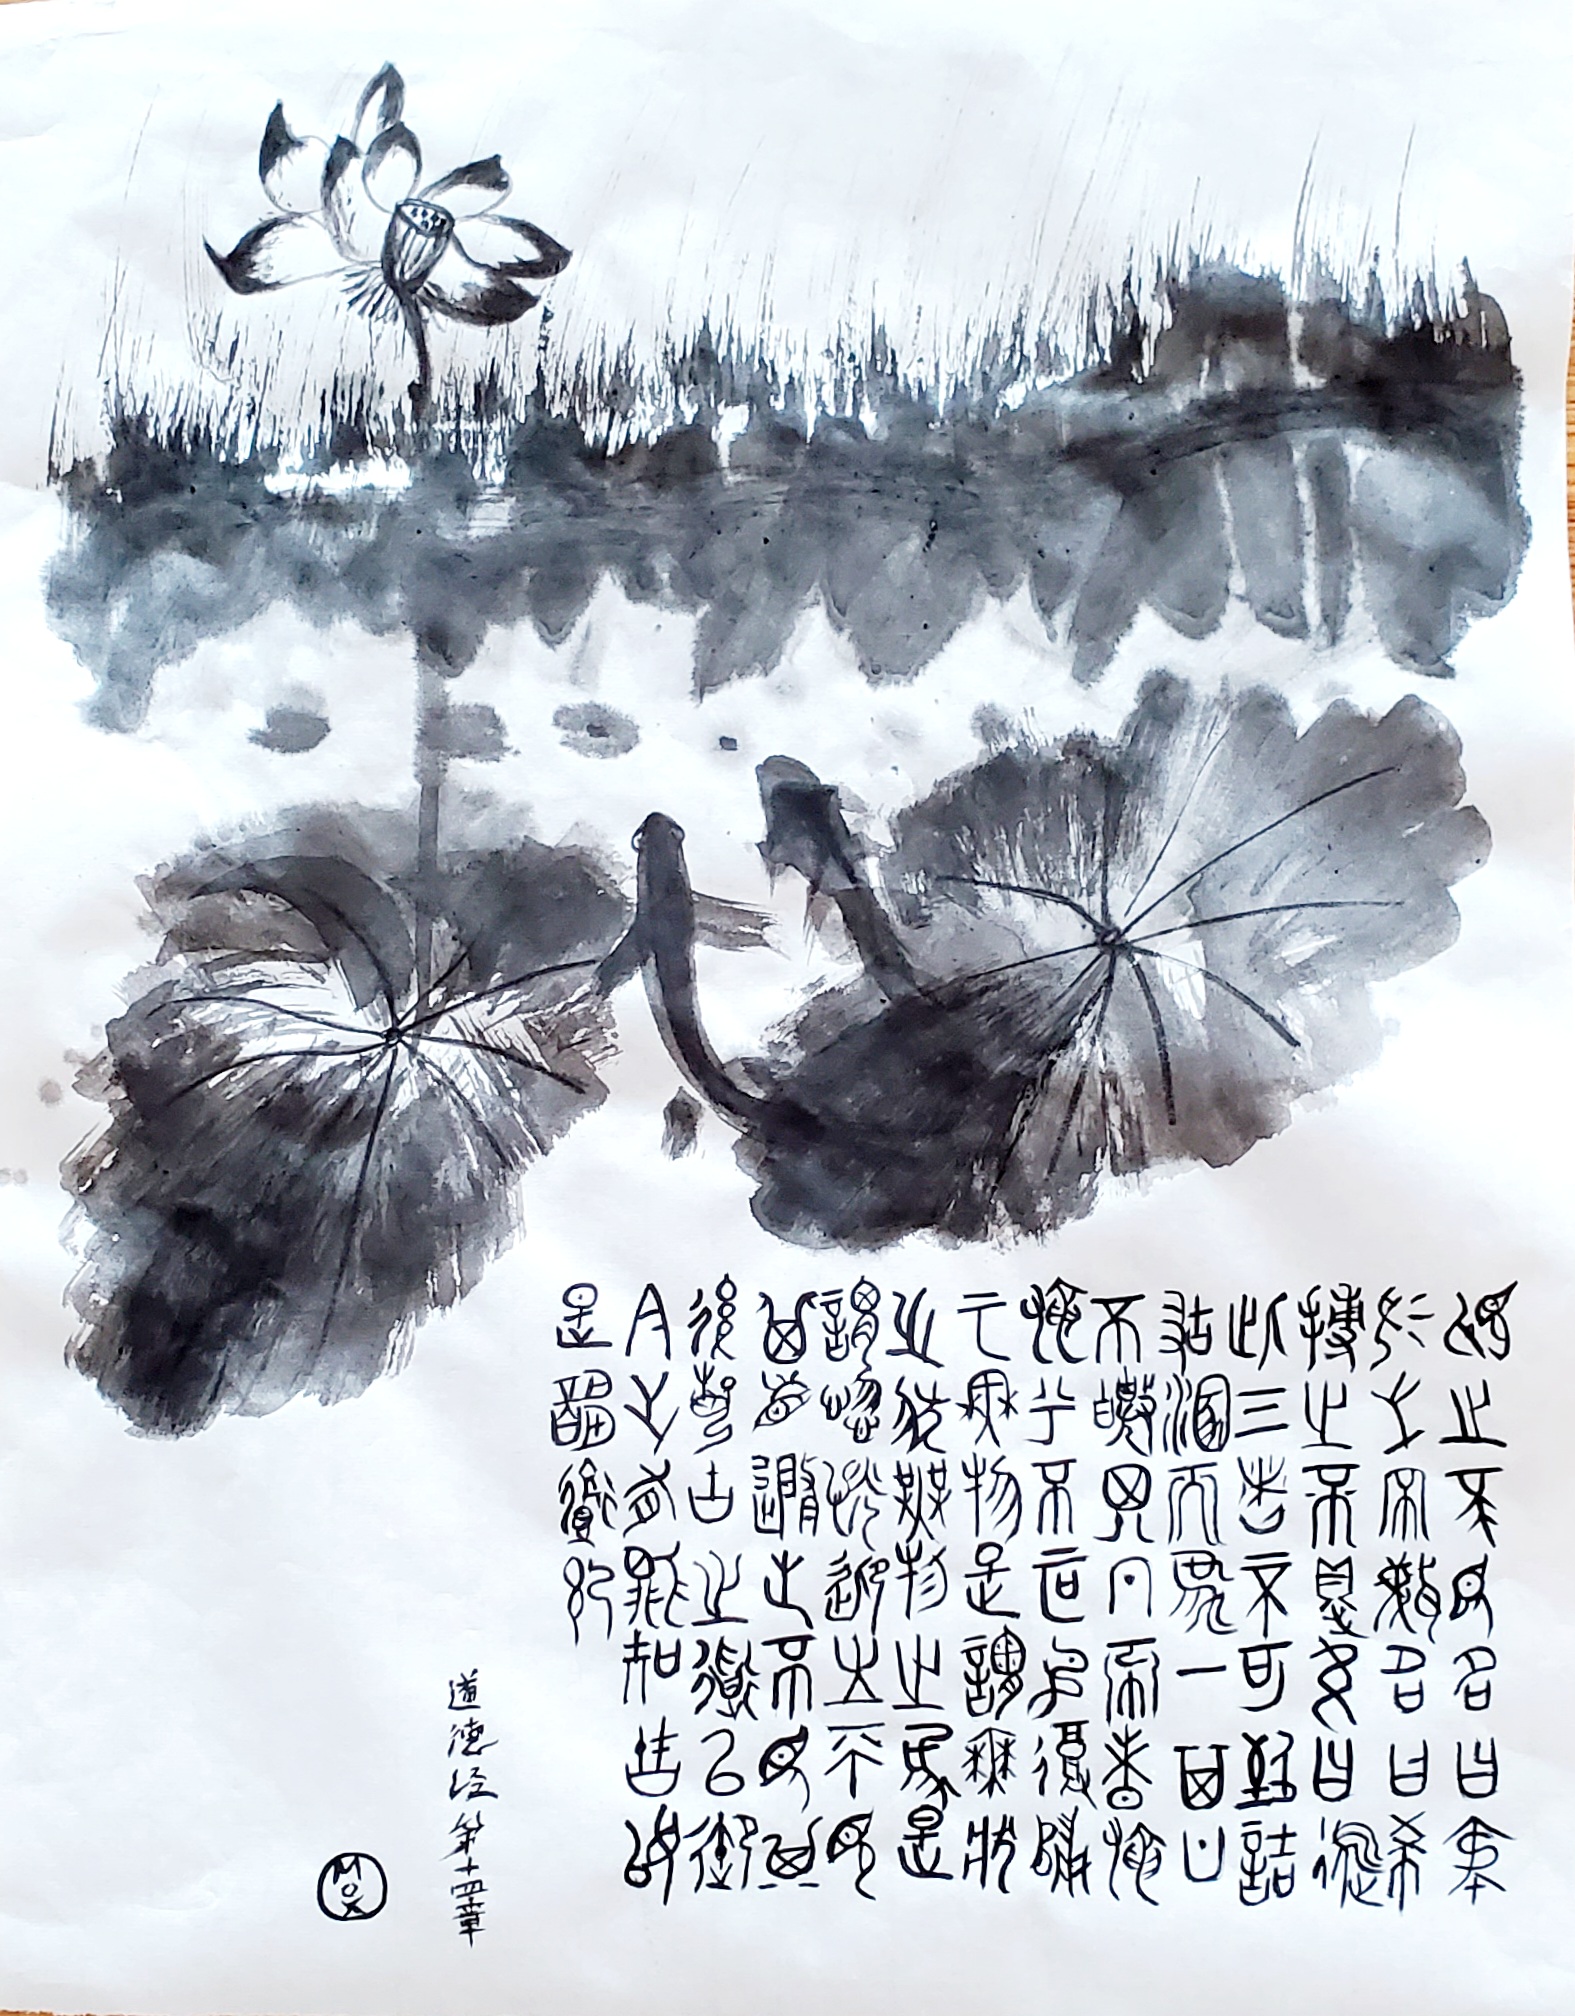 視之不見名曰夷
聽之不聞名曰希
搏之不得名曰微
此三者不可致詰
故混而為一其上
不皦其下不昧繩
繩兮不可名復歸
於無物是謂無狀
之狀無物之象是
謂惚恍迎之不見
其首隨之不見其
後執古之道以御
今之有能知古始
是謂道紀
道德经第十四章
MOX